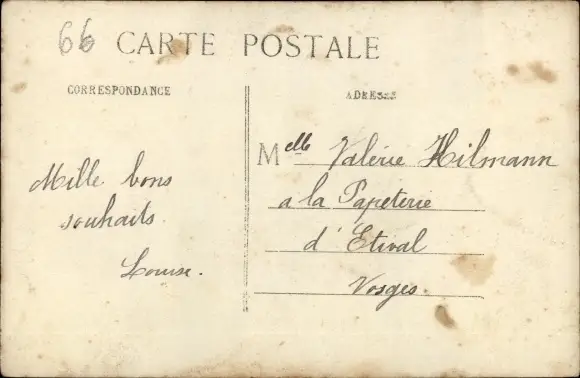 66 CARTE POSTALE
CORRESPONDANCE
ADRESSE
Mille bons
souhaits.
Louise.
Melle Valérie Hilmann
a la Papeterie
d'Etival
Vosges.